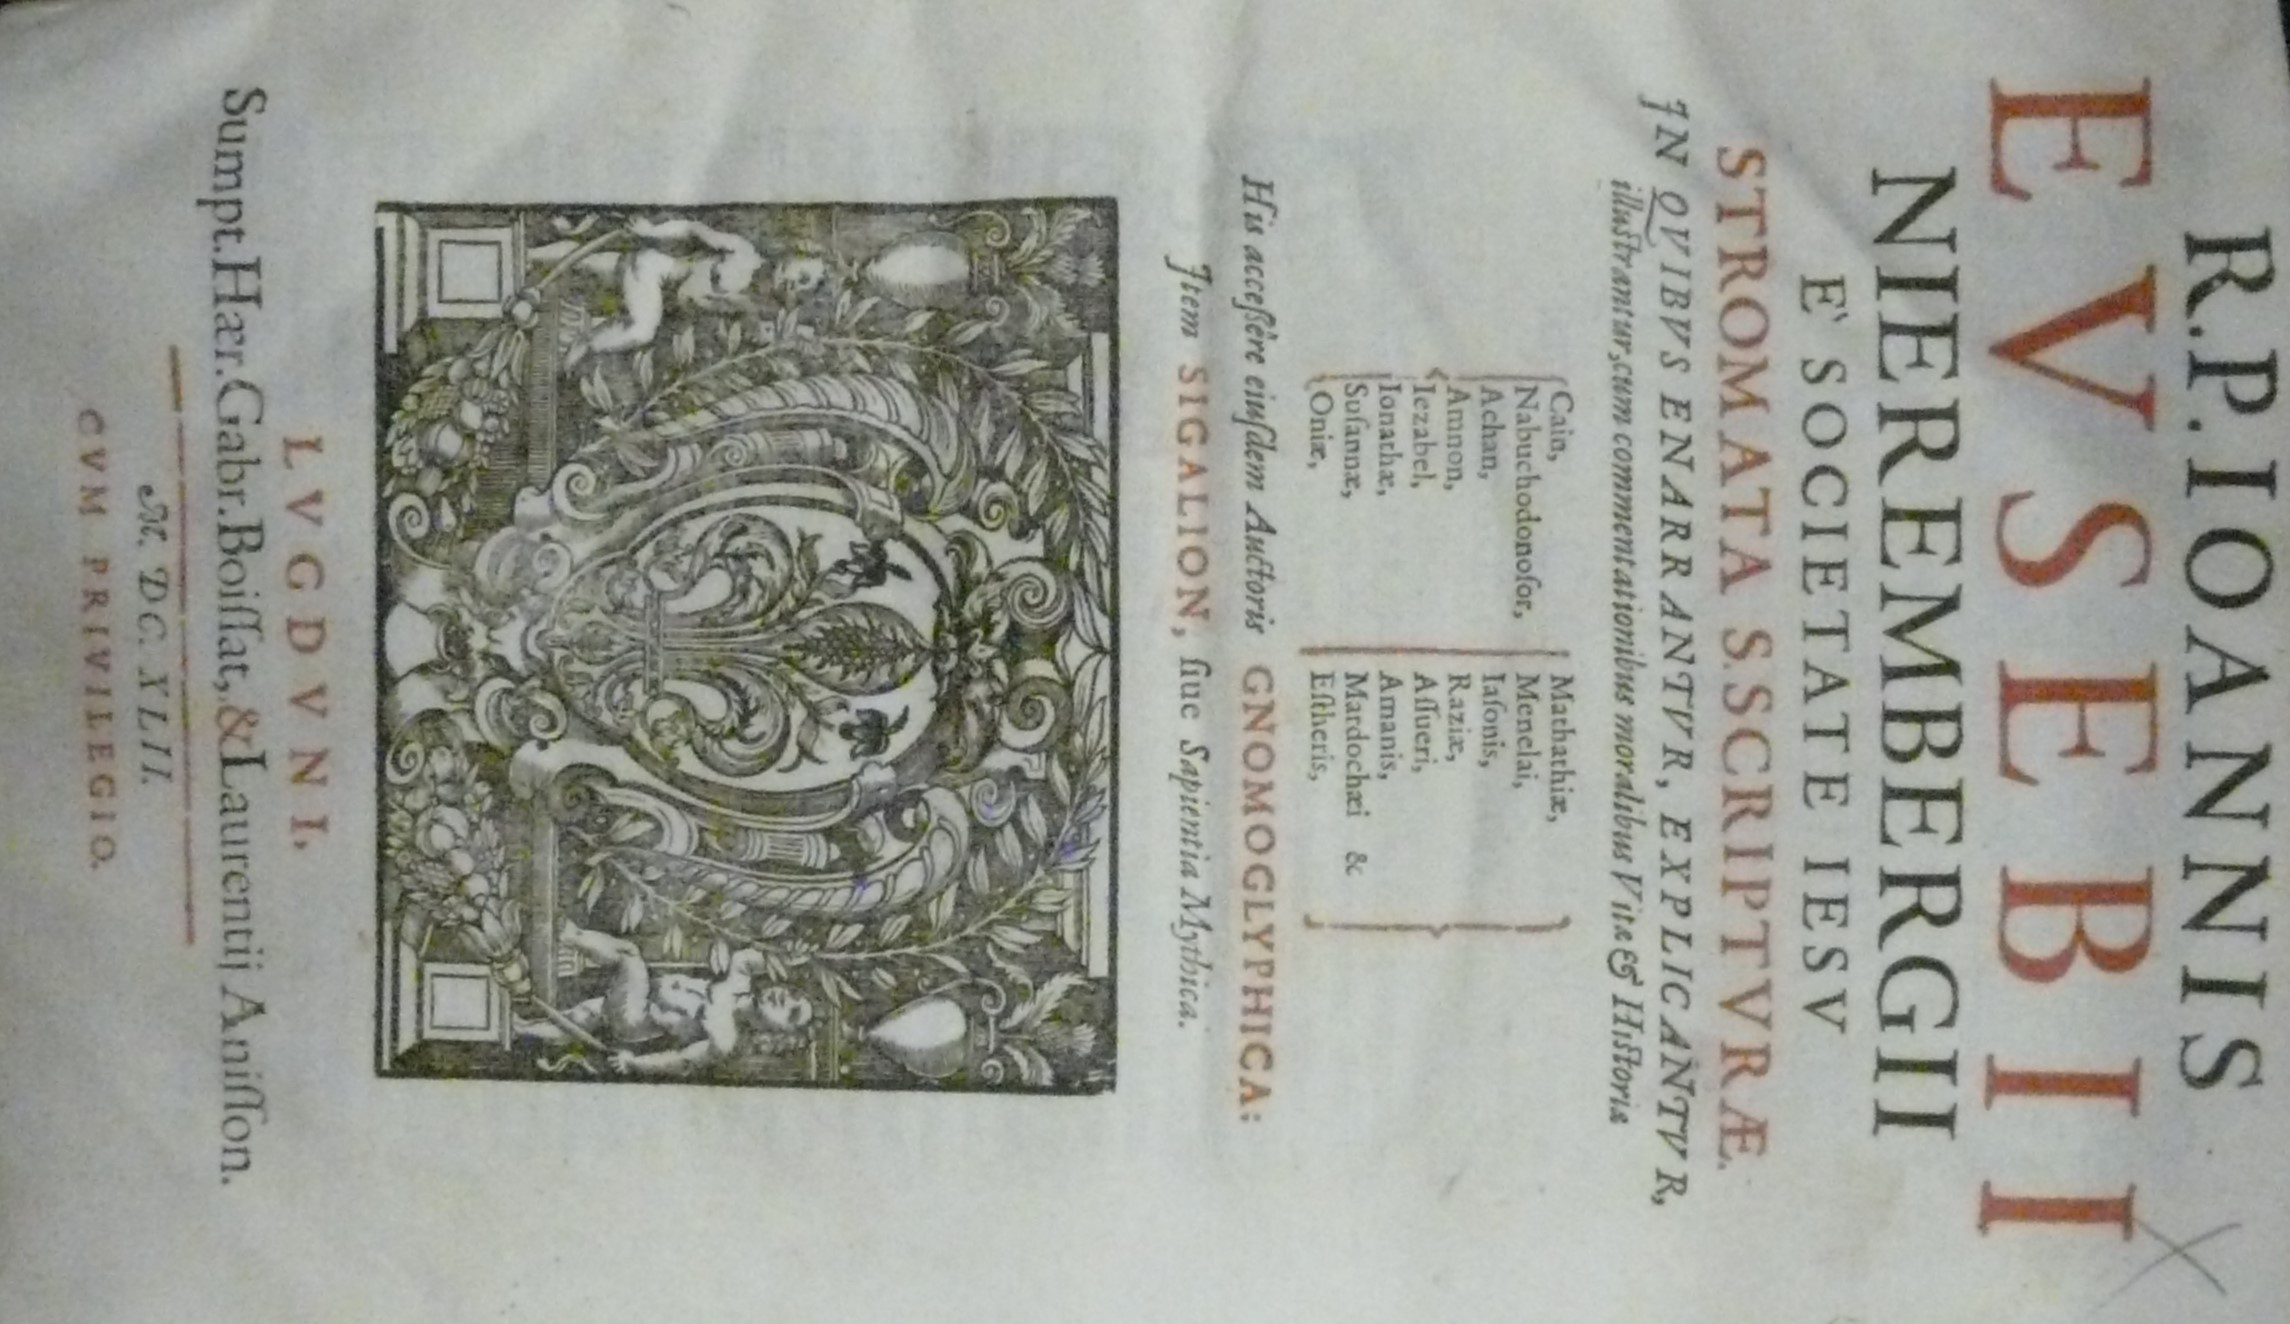 R. P. IOANNIS
EVSEBII
NIEREMBERGII
E' SOCIETATE IESV
STROMATA S. SCRIPTVRÆ.
IN QVIBVS ENARRANTVR, EXPLICANTVR,
illuſtrantur, cum commentationibus moralibus Vitæ & Hiſtoriæ
Cain,
Nabuchodonoſor,
Achan,
Amnon,
Iezabel,
Ionathæ,
Suſannæ,
Oniæ,
Mathathiæ,
Menelai,
Iaſonis,
Raziæ,
Aſſueri,
Amanis,
Mardochæi &
Eſtheris,
His acceſsêre eiuſdem Auctoris GNOMOGLYPHICA:
Item SIGALION, ſiue Sapientia Mythica.
LVGDVNI,
Sumpt. Hær. Gabr. Boiſſat, & Laurentij Aniſſon.
M. DC. XLII.
CVM PRIVILEGIO.